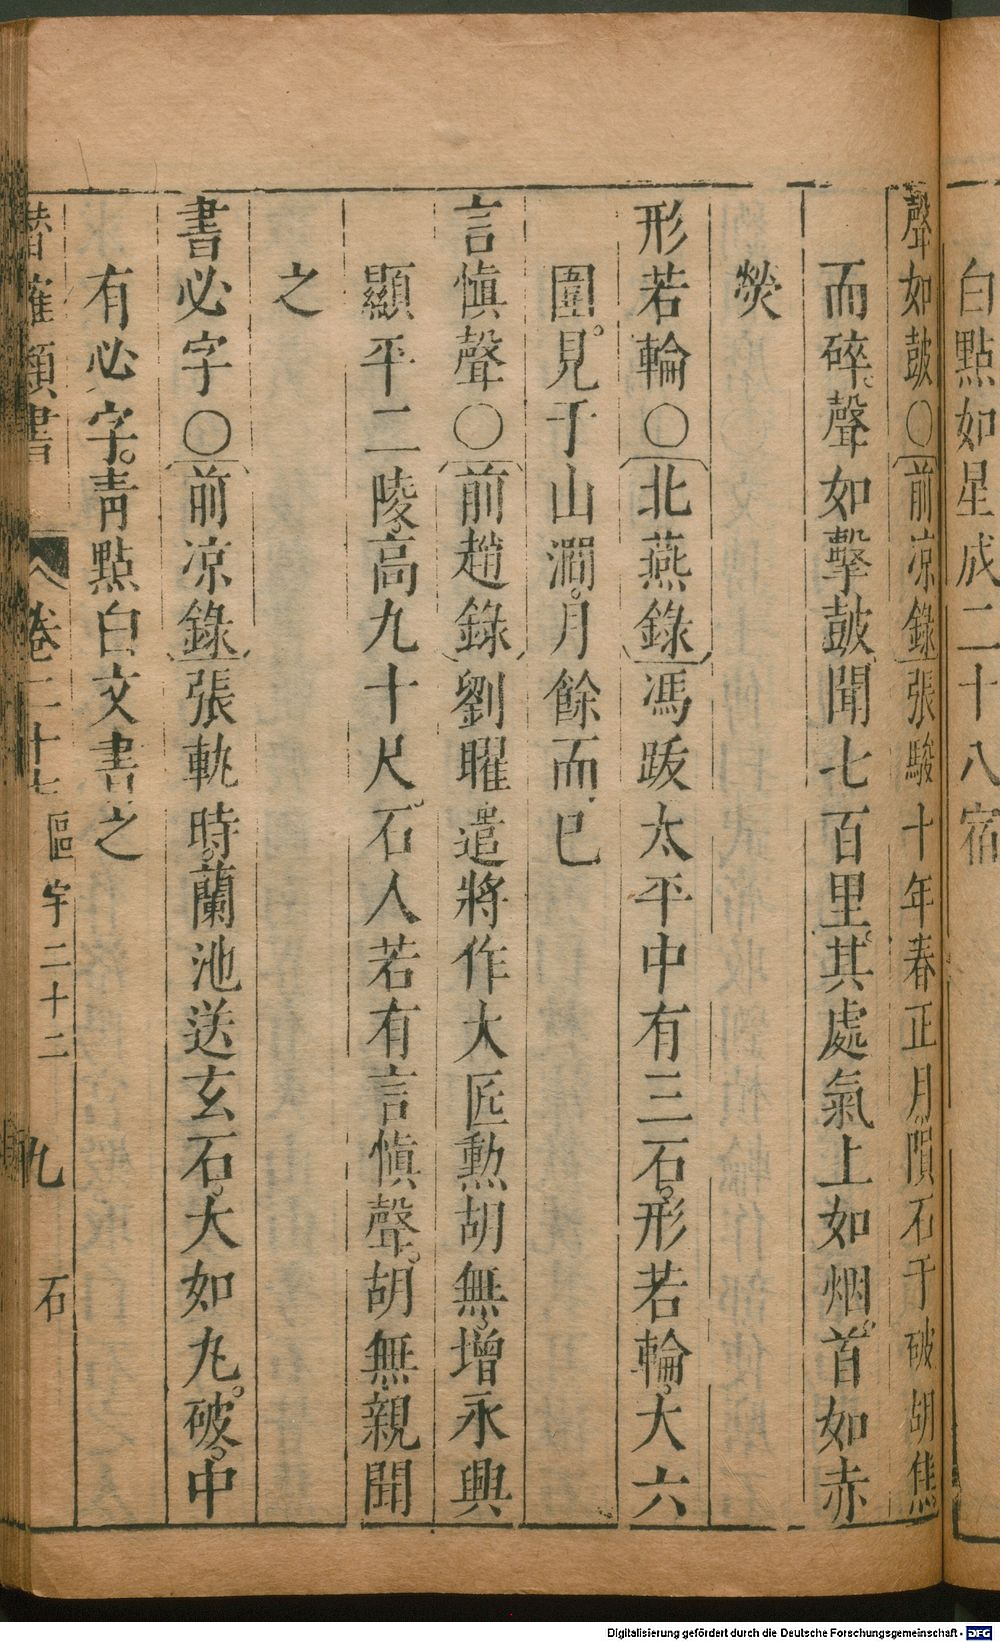 白點如星成二十八宿
聲如鼓○前凉錄張駿十年春正月隕石于破胡焦
而碎聲如擊鼓聞七百里其處氣上如烟首如赤
熒
形若輪○北燕錄馮跋太平中有三石形若輪大六
圍見于山澗月餘而已
言愼聲○前趙錄劉曜遣將作大匠勲胡無增永興
顯平二陵高九十尺石人若有言愼聲胡無親聞
之
書必字○前凉錄張軌時蘭池送玄石大如丸破中
有必字青點白文書之
潛確類書 卷二十七 區宇二十二 九 石
Digitalisierung gefördert durch die Deutsche Forschungsgemeinschaft - DFG